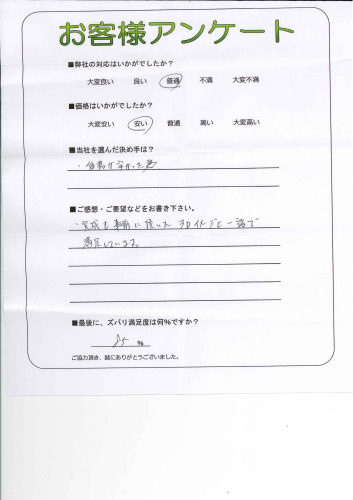 お客様アンケート
■弊社の対応はいかがでしたか？
大変良い 良い 普通 不満 大変不満
■価格はいかがでしたか？
大変安い 安い 普通 高い 大変高い
■当社を選んだ決め手は？
・価格が安かった為
■ご感想・ご要望などをお書き下さい。
・完成も事前に頂いた3Dイメージと一緒で
満足しています。
■最後に、ズバリ満足度は何%ですか？
85 %
ご協力頂き、誠にありがとうございました。